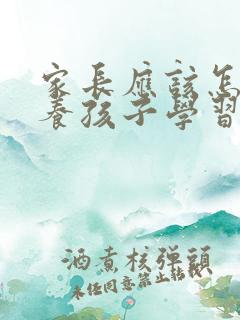 家長應該怎
養孩子學習
酒煮核弹頭
未经同意禁止轉載